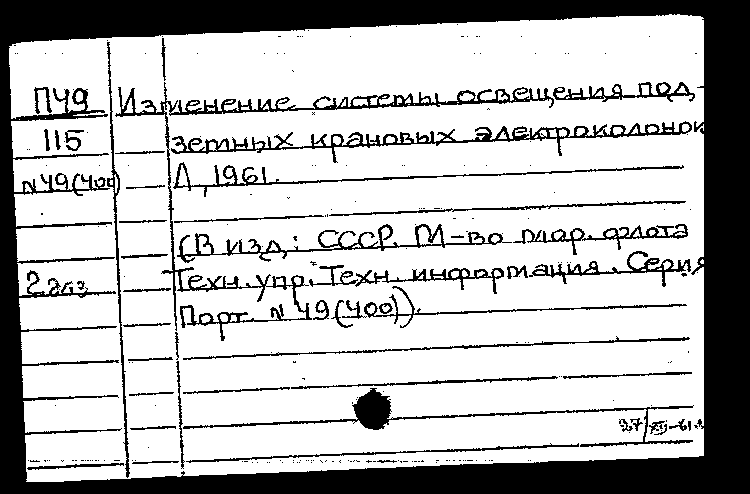 П49 Изменение системы освещения под-
115 земных крановых электроколонок
N49(400) Л, 1961.
(В изд.: СССР. М-во мор. флота
2 экз Техн. упр. Техн. информация. Серия
Порт. N 49(400)).